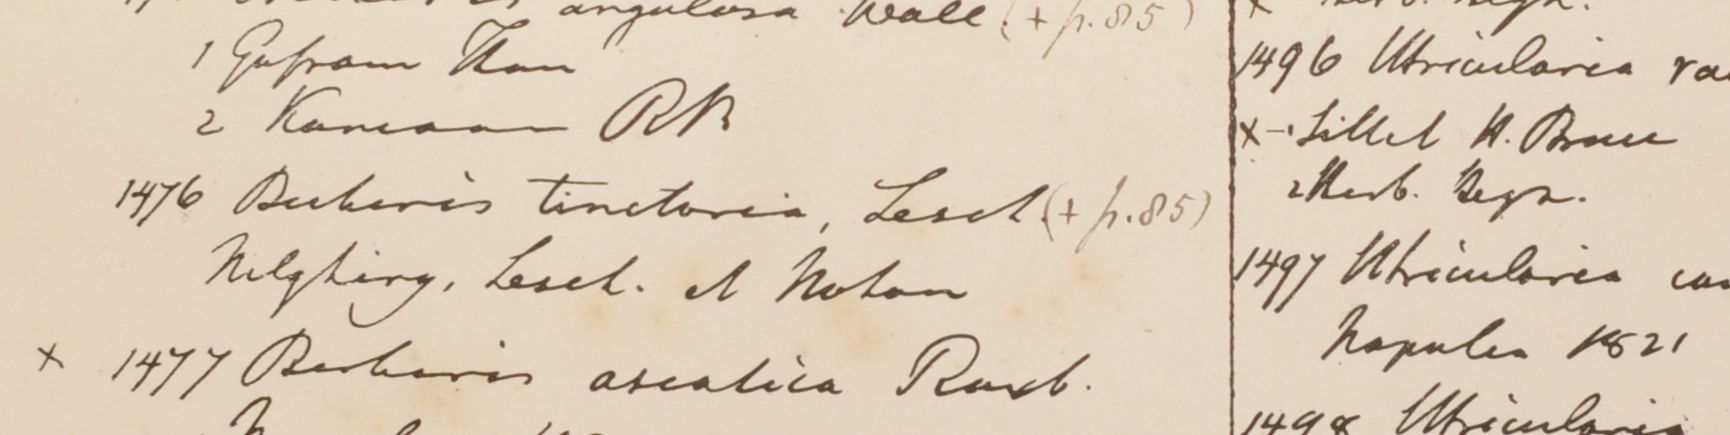 angulosa Wall. (+ p. 85)
1 Gosram Than
2 Kamaon RB
1476 Berberis tinctoria, Lesch (+ p. 85)
Nilghiry, Lesch. et Noton
x 1477 Berberis aseatica Roxb.
x Herb. Hegn.
1496 Utricularia
x-1 Sillet H. Bruce
2 Herb. Hegn.
1497 Utricularia
Napalea 1821
1498 Utricularia